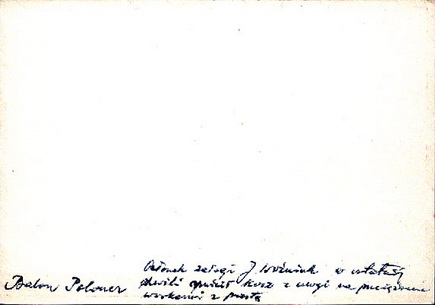 Członek załogi J. Woźniak w ostatniej
chwili opuścił kosz z uwagi na przeciążenie
Balon Poloner workami z piasku